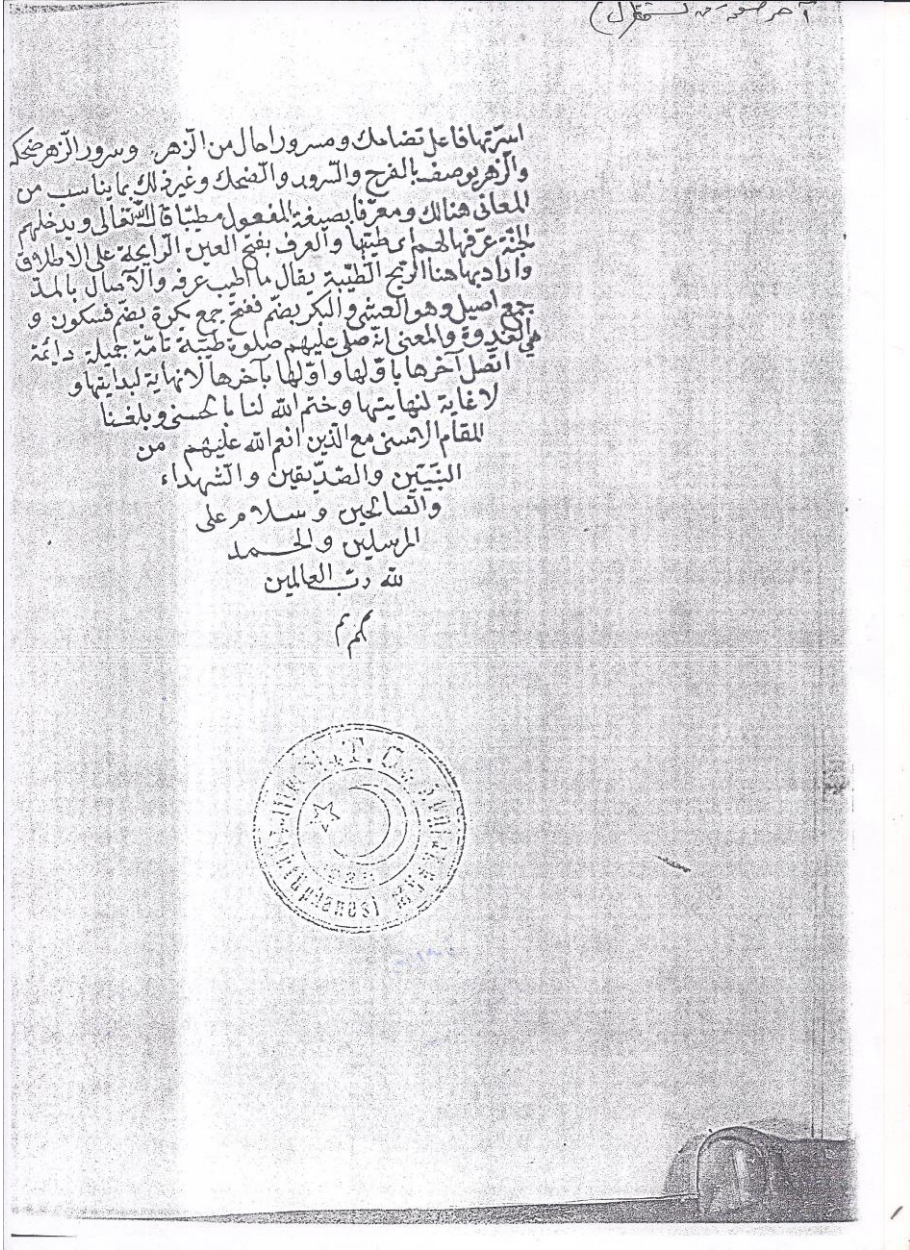 آخر صفحة من نسخة (ل)
اسرتها فاعل تضاحك ومسرورا حال من الزهر وسرور الزهر ضحكه
والزهر يوصف بالفرح والسّرور والضّحك وغير ذلك بما يناسب من
المعانى هنالك ومعرّفا بصيغة المفعول مطيّبا قال الله تعالى ويدخلهم
الجنّة عرّفها لهم اى طيّبها والعرف بفتح العين الرّايحة على الاطلاق
واراد بها هنا الرّيح الطّيّبة يقال ما اطيب عرفه والآصال بالمدّ
جمع اصيل وهو العشى والبكر بضمّ ففتح جمع بكرة بضمّ فسكون و
هي الغدوة والمعنى انه صلى عليهم صلوة طيّبة تامّة جميلة دايمة
اتصل آخرها باوّلها واوّلها بآخرها لا نهاية لبدايتها و
لا غاية لنهايتها وختم الله لنا بالحسنى وبلغنا
المقام الاسنى مع الذين انعم الله عليهم من
النبيّين والصّدّيقين والشّهداء
والصّالحين وسلام على
المرسلين والحمد
لله ربّ العالمين
T. C.